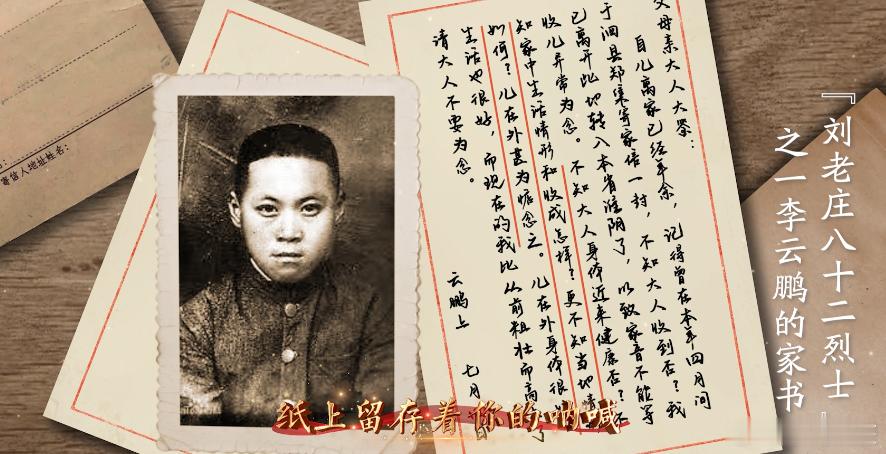 『刘老庄八十二烈士』
之一李云鹏的家书
父母亲大人大鉴：
自儿离家已经年余，记得曾在本年四月间
于泗县郑集寄家信一封，不知大人收到否？我
已离开此地转入本省淮阴了，以致家音不能写
收儿异常为念。不知大人身体近来健康否？不
知家中生活情形和收成怎样？更不知当地情
如何？儿在外甚为惦念之。儿在外身体很
生活也很好，而现在的我比从前粗壮而高
请大人不要为念。
云鹏上 七月
寄信人地址姓名：
纸上留存着你的呐喊